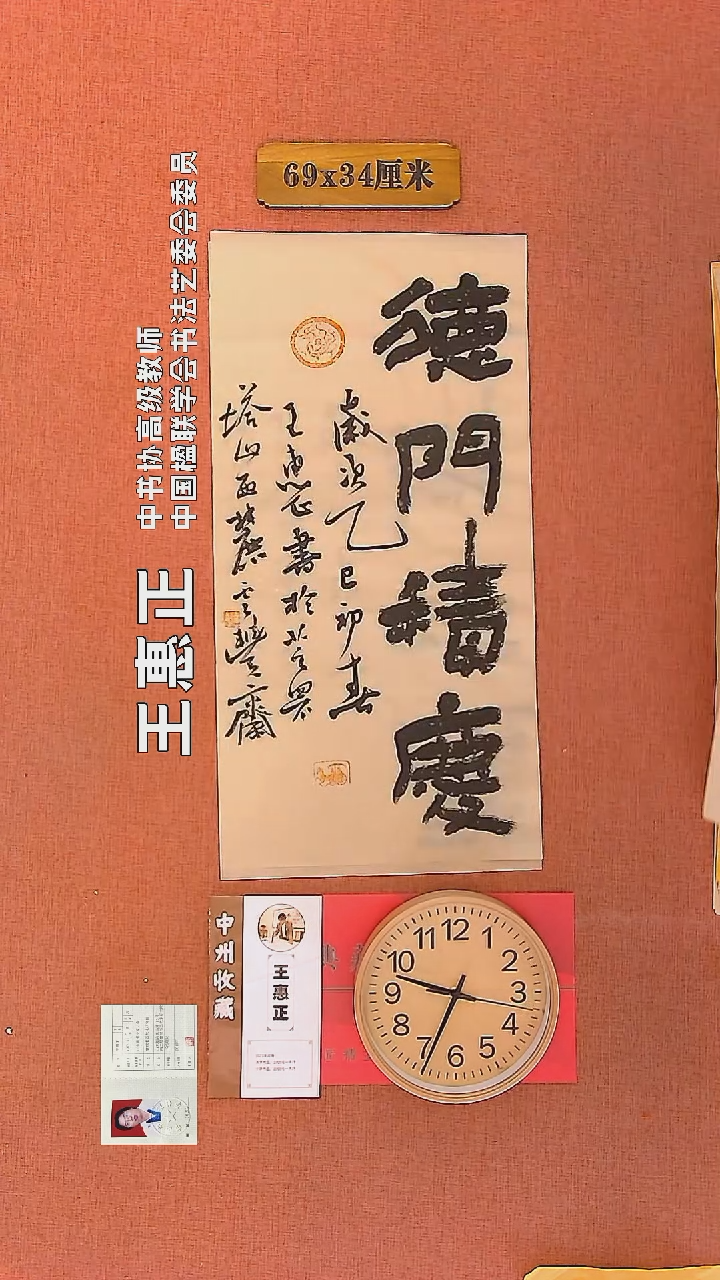 69x34厘米
德門積慶
歲次乙巳初春
王惠正書於北京異
塔山西麓雲豐齋
王惠正
中书协高级教师
中国楹联学会书法艺委会委员
中州收藏
王惠正
12
1
2
3
4
5
6
7
8
9
10
11